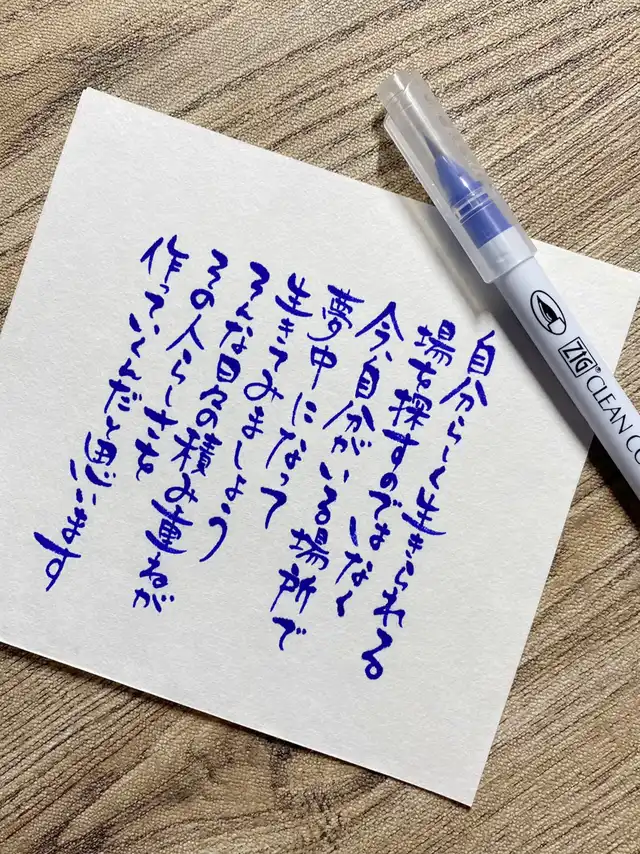 自分らしく生きられる
場を探すのではなく
今、自分がいる場所で
夢中になって
生きてみましょう
そんな日々の積み重ねが
その人らしさを
作っていくんだと思います
ZIG® CLEAN CO